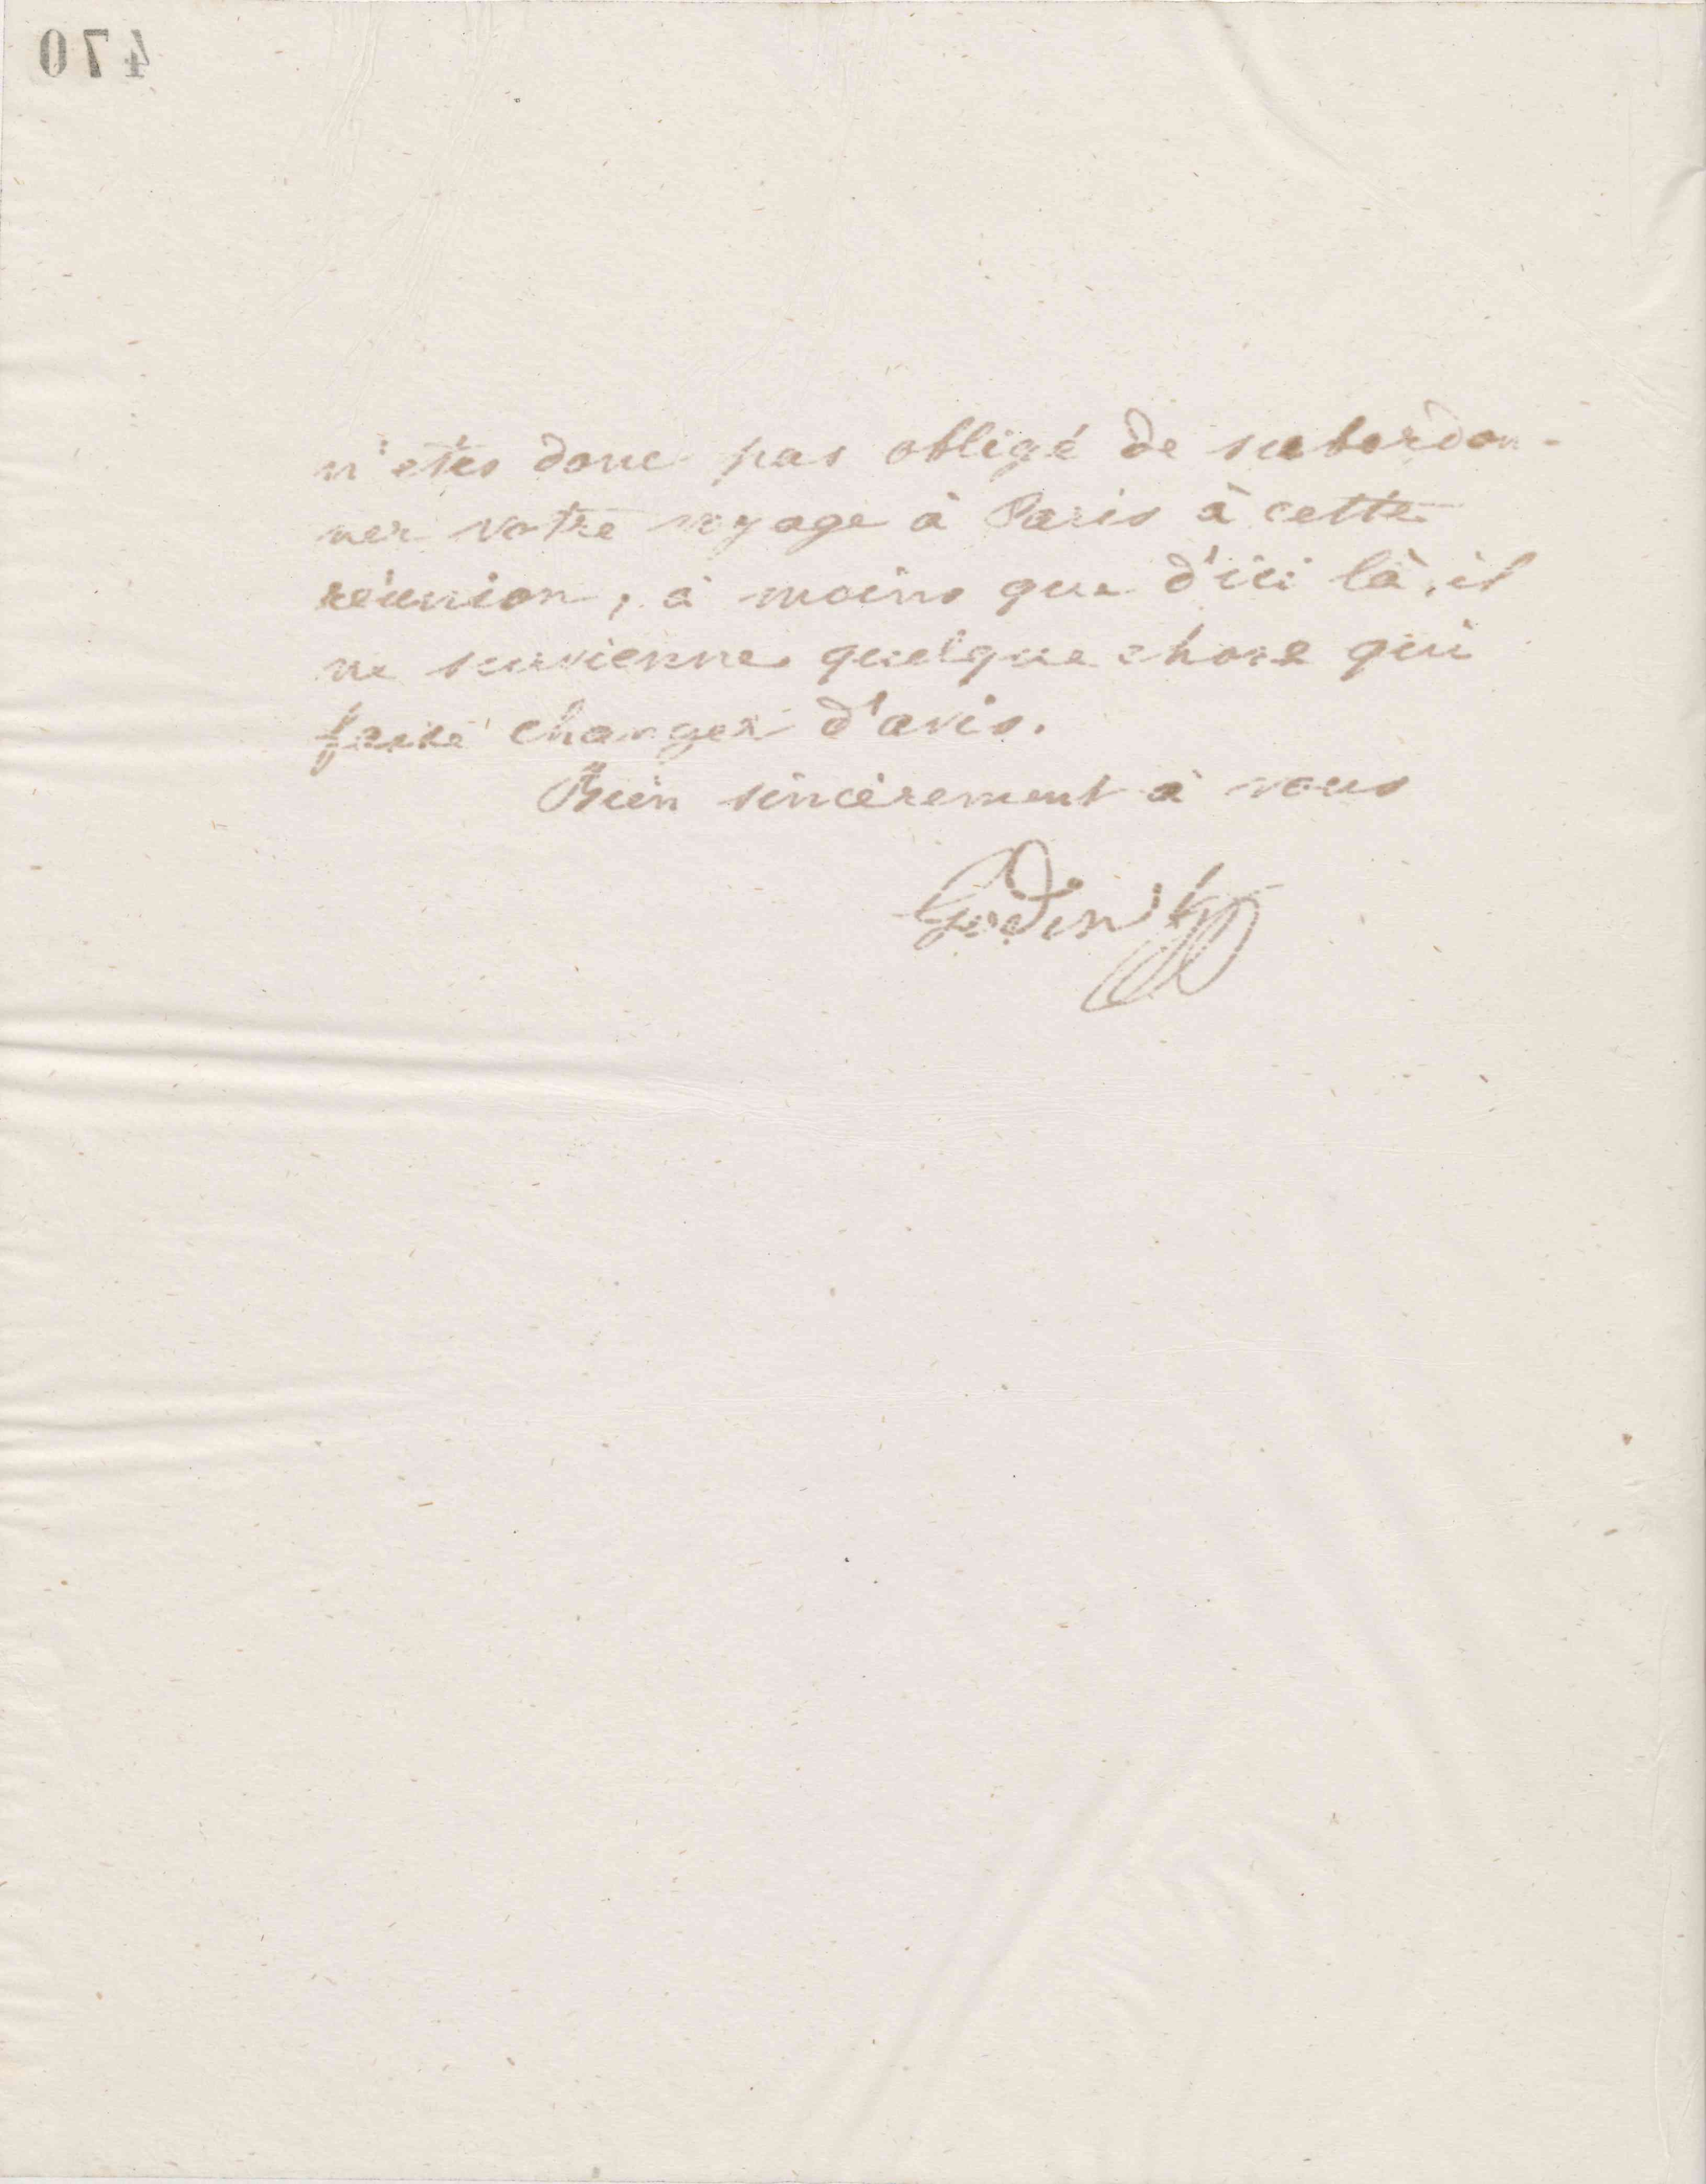 470
n'etes donc pas obligé de subordon-
ner votre voyage à Paris à cette
réunion, à moins que d'ici là, il
ne survienne quelque chose qui
fasse changer d'avis.
Bien sincèrement à vous
Godin